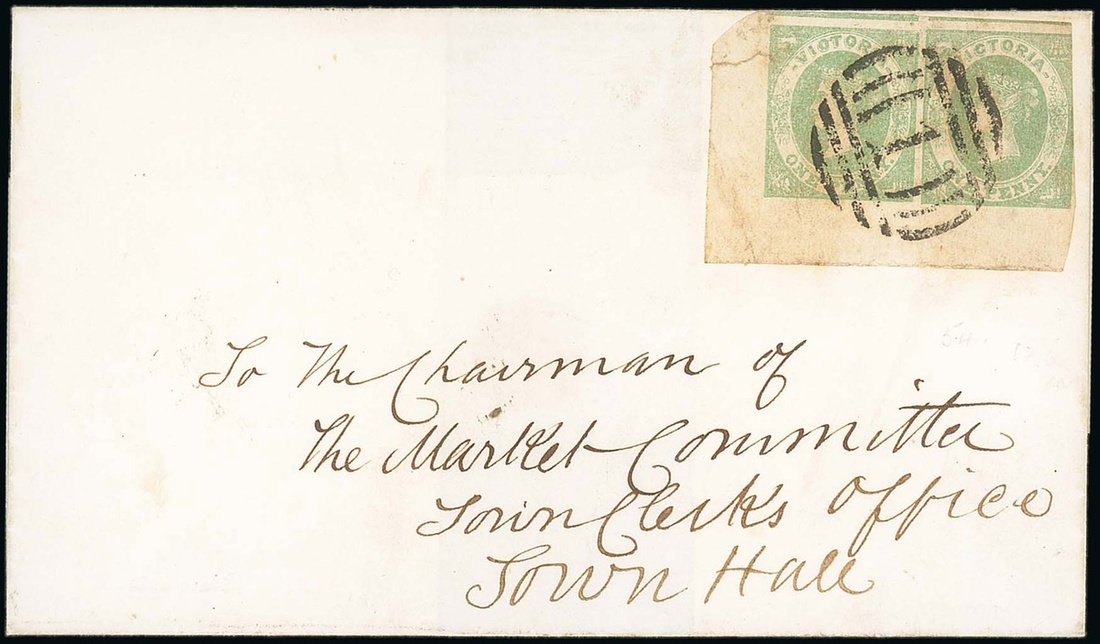 VICTORIA VICTORIA
ONE PENNY
1
To The Chairman of
The Market Committee
Town Clerks Office
Town Hall